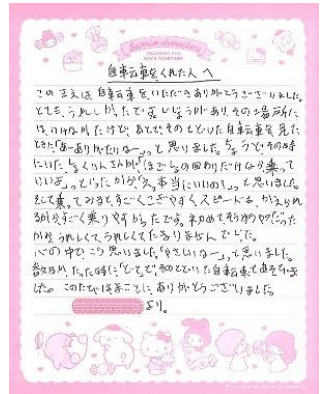 自転車をくれた人へ
このまえは、自転車を、いただきありがとうございました。
とても、うれしかったです。じじょうがあり、その場所に
はいけなかったけど、あとでそのとどいた自転車を見た
とき「あーありがたいなー」と思いました。ちょうどその時
にいた、しょくいんさんが「ほごしょの回りだけなら乗って
いいよ」といったから「え、本当にいいの!」と思いました。
そして乗ってみるとすごくこぎやすくスピードも、かえられ
るからすごく乗りやすかったです。ネカもでそうなやつだった
から、うれしくて、うれしくてたまりませんでした。
心の中でこう思いました。「やさしいなー」と思いました。
数日がたった時に「とてで」そのとどいた自転車であそびま
した。このたびはまことに、ありがとうございました。
より。